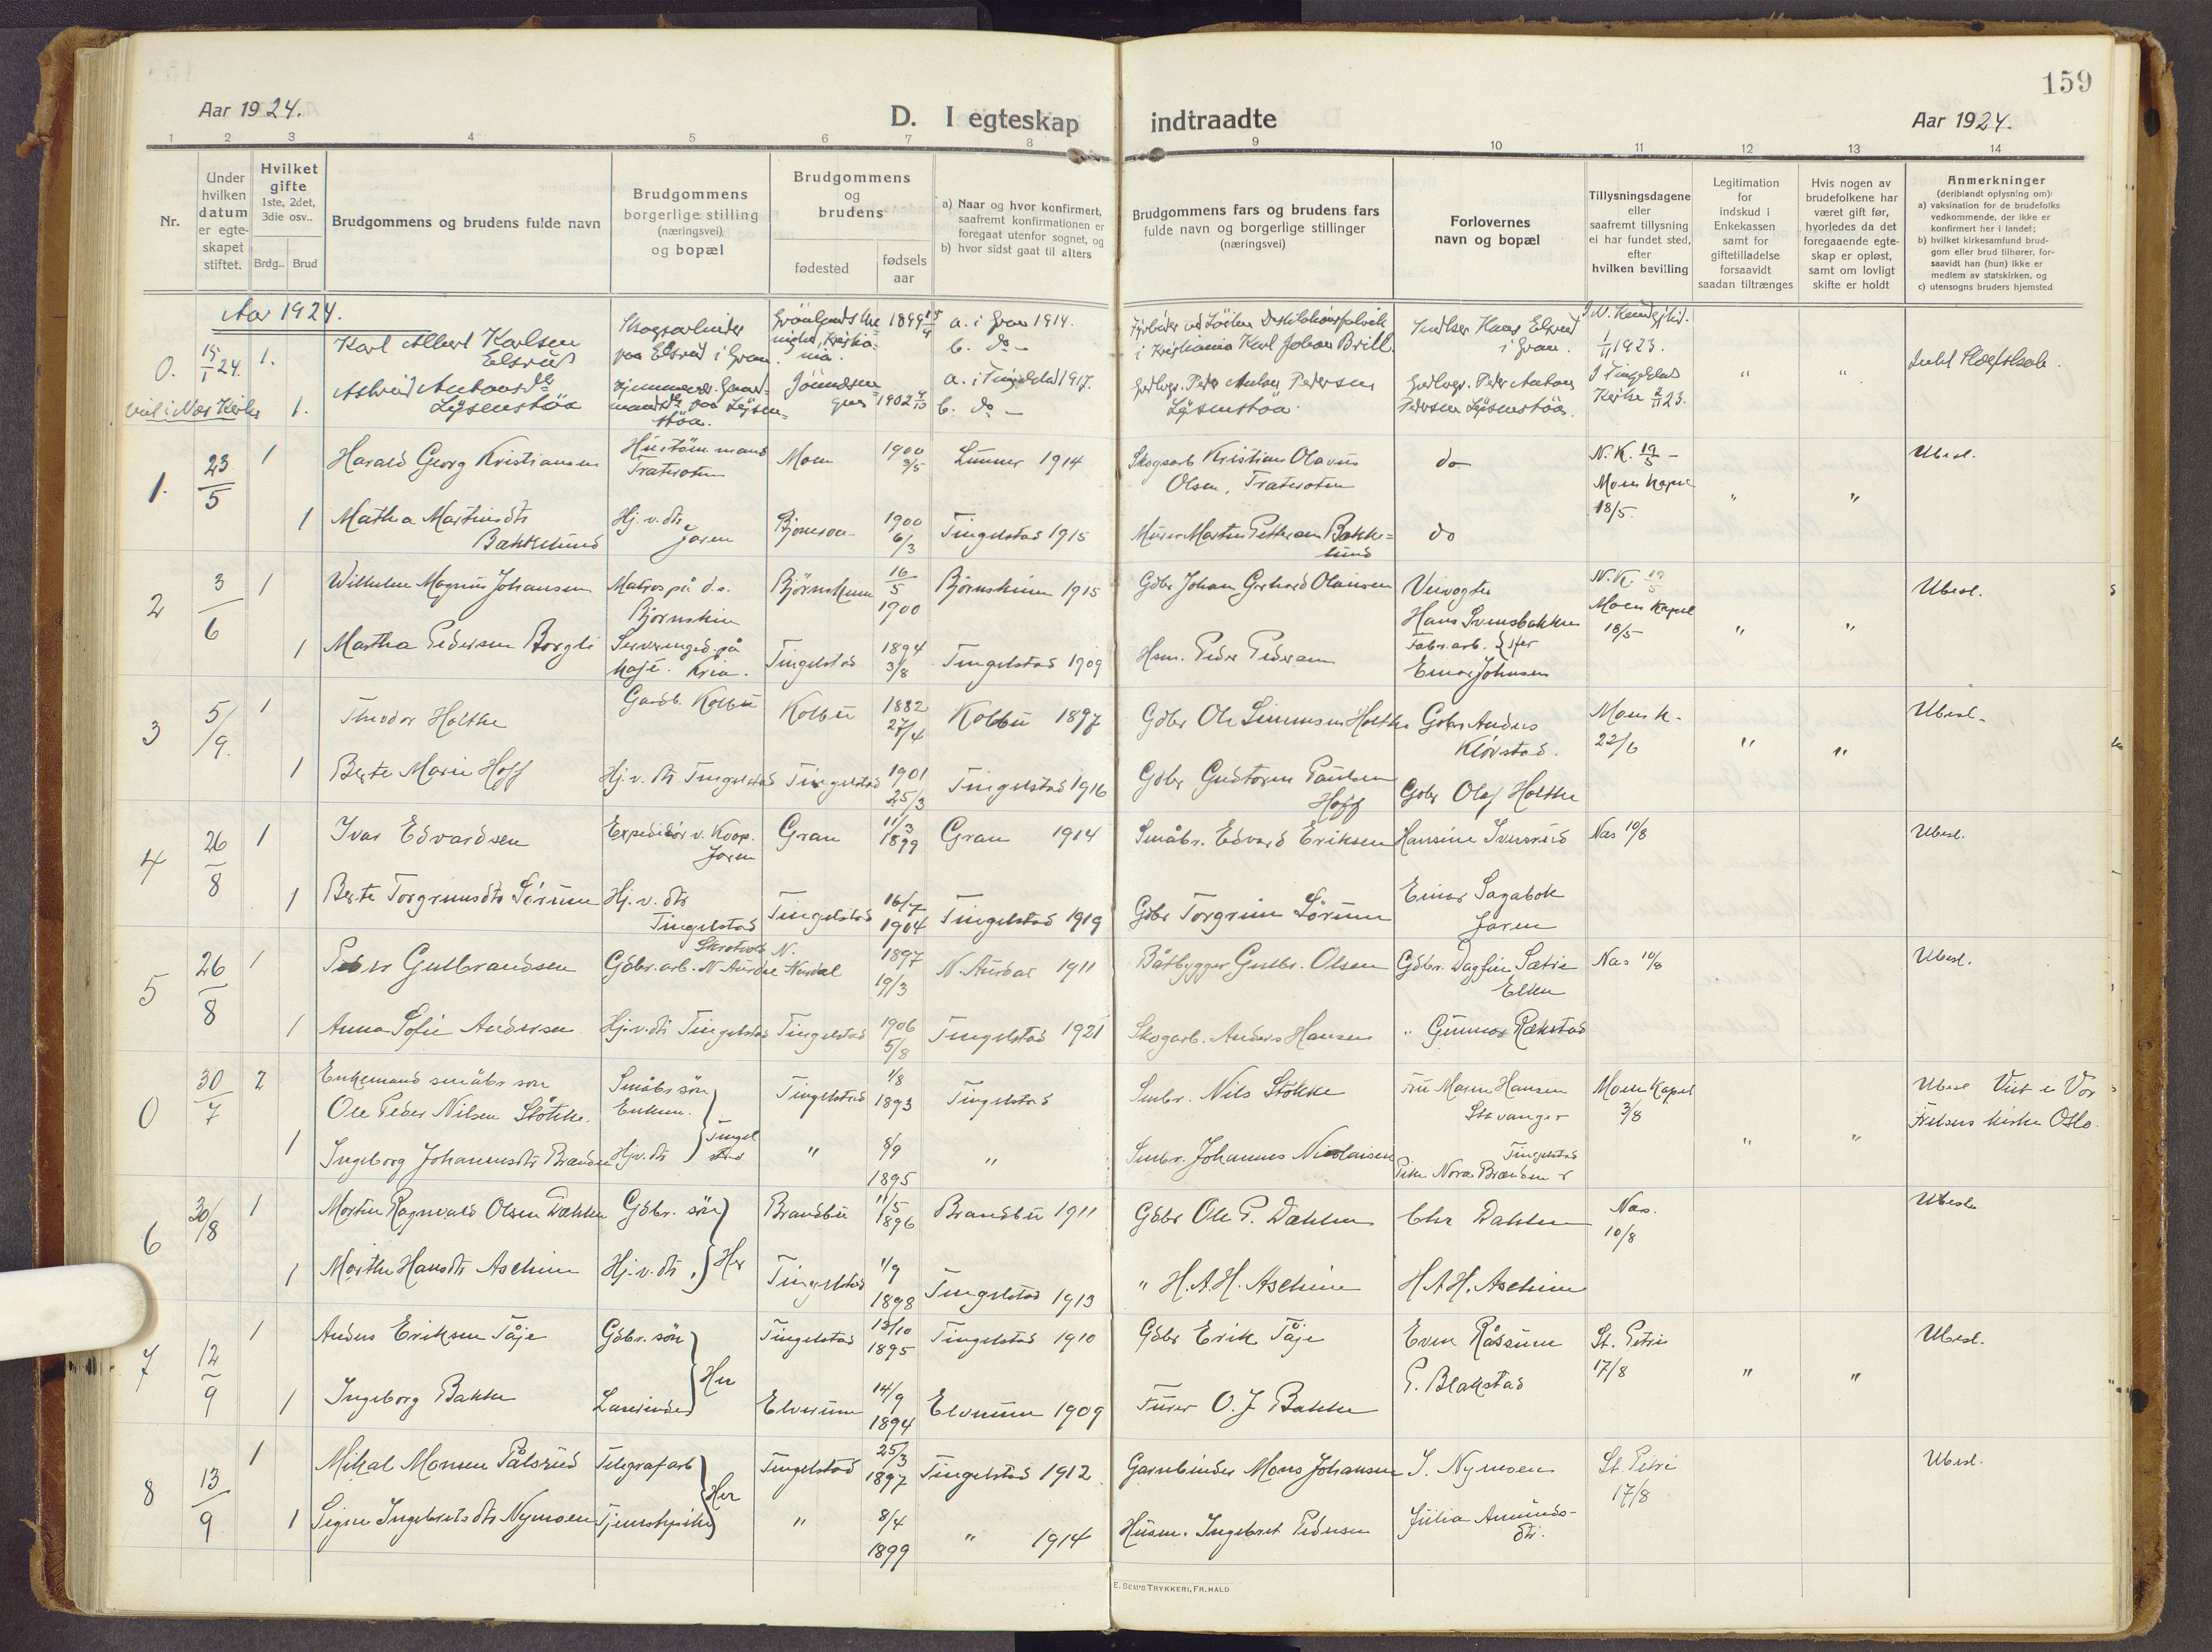 159
Aar 1924.
D. I egteskap indtraadte
Aar 1924.
1 2 3 4 5 6 7 8 9 10 11 12 13 14
Nr.
Under hvilken datum er egteskapet stiftet.
Hvilket gifte 1ste, 2det, 3die osv..
Brdg.. Brud
Brudgommens og brudens fulde navn
Brudgommens borgerlige stilling (næringsvei) og bopæl
Brudgommens og brudens
fødested
fødsels aar
a) Naar og hvor konfirmert, saafremt konfirmationen er foregaat utenfor sognet, og
b) hvor sidst gaat til alters
Brudgommens fars og brudens fars fulde navn og borgerlige stillinger (næringsvei)
Forlovernes navn og bopæl
Tillysningsdagene eller saafremt tillysning ei har fundet sted, efter hvilken bevilling
Legitimation for indskud i Enkekassen samt for giftetilladelse forsaavidt saadan tiltrænges
Hvis nogen av brudefolkene har været gift før, hvorledes da det foregaaende egteskap er opløst, samt om lovligt skifte er holdt
Anmerkninger
(deriblandt oplysning om):
a) vaksination for de brudefolks vedkommende, der ikke er konfirmert her i landet;
b) hvilket kirkesamfund brudgom eller brud tilhører, forsaavidt han (hun) ikke er medlem av statskirken, og
c) utensogns bruders hjemsted
Aar 1924.
0. 15/1 24. 1. Karl Albert Karlsen Elsrud
Skogsarbeider paa Elsrud i Gran.
1899 15/9 a. i Gran 1914. b. do -
i Kristiania Karl Johan Brill.
Hans Elsrud i Gran.
1/11 1923.
Viet i Næs Kirke 1. Astrid Antonsdtr Lysenstöa
1902 a. i Tingelstad 1917. b. do -
Gaardbr. Peder Anton Pedersen Lysenstöa.
Gaardbr. Peder Anton Pedersen Lysenstöa.
I Tingelstad Kirke 2/11 23. " "
1. 23/5 1 Harald Georg Kristiansen
Hustömmand Trateroten
Moen 1900 3/5 Lunner 1914
Skogsarb Kristian Olavus Olsen, Trateroten
do
N.K. 19/5 - Moen Kapel 18/5. " "
Ubesl.
1 Matha Martinsdtr Bakkelund
Hj. v. dtr Jaren
1900 6/3 Tingelstad 1915
Murer Martin Pettersen Bakkelund
do
2 3/6 1 Wilhelm Magnus Johansen
Matros på d.s. Björnskin
Björnskinn 16/5 1900 Björnskinn 1915
Gdbr Johan Gerhard Olausen
Veivogter Hans Svensbakken
N.K. 19/5 Moen Kapel 18/5 " "
Ubesl.
1 Martha Pedersen Borgli
Serveringsd. på kafe. Kria.
Tingelstad 1894 3/8 Tingelstad 1909
Hsm. Peder Pedersen
Fabr.arb. Einar Johnsen
3 5/9. 1 Theodor Holthe
Gardb. Kolbu
Kolbu 1882 27/4 Kolbu 1897
Gdbr Ole Simensen Holthe
Gdbr Anders Klövstad.
Moen k. 22/6 " "
Ubesl.
1 Berte Marie Hoff
Hj. v. dtr Tingelstad
Tingelstad 1901 25/3 Tingelstad 1916
Gdbr Gudtorm Paulsen Hoff
Gdbr Olaf Holthe
4 26/8 1 Ivar Edvardsen
Expeditör v. Koop. Jaren
Gran 11/3 1899 Gran 1914
Småbr. Edvard Eriksen
Hansine Iversrud
Næs 10/8
Ubesl.
1 Berte Torgrimsdtr Sörum
Hj. v. dtr Tingelstad
Tingelstad 16/7 1904 Tingelstad 1919
Gdbr Torgrim Sörum
Einar Sagabok Jaren
5 26/8 1 Peder Gulbrandsen
Gdbr.arb. N. Aurdal
N. Aurdal 1897 19/3 N. Aurdal 1911
Båtbygger Gulbr. Olsen
Gdbr. Dagfin Sætre
Næs 10/8
Ubesl.
1 Anna Sofie Andersen
Hj. v. dtr Tingelstad
Tingelstad 1906 5/8 Tingelstad 1921
Skogarb. Anders Hansen
" Gunnar Rækstad
0 30/7 2 Enkemand småbr sön Ole Peder Nilsen Stökke.
Småbr sön Enkem.
Tingelstad 1/8 1893 Tingelstad
Smbr. Nils Stökke
Fru Maren Hansen Stavanger
Moen Kapel 3/8 " "
Ubesl Viet i Vor Frelsers kirke Oslo.
1 Ingeborg Johannesdtr Brænden
Hj. v. dtr Tingelstad
" 8/9 1895 "
Smbr. Johannes Nicolaisen
Pike Nora Brænden Tingelstad
6 30/8 1 Martin Ragnvald Olsen Dæhlen
Gdbr. sön
Brandbu 11/5 1896 Brandbu 1911
Gdbr Ole P. Dæhlen
Chr Dæhlen
Næs. 10/8
Ubesl.
1 Marthe Hansdtr Aschim
Hj. v. dtr, Her
Tingelstad 1/9 1898 Tingelstad 1913
" H.A.H. Aschim
H.A.H. Aschim
7 12/9 1 Anders Eriksen Tåje
Gdbr. sön
Tingelstad 13/10 1895 Tingelstad 1910
Gdbr Erik Tåje
Even Råssum
St. Petri 17/8 " "
Ubesl.
1 Ingeborg Bakke
Lærerinde Her
Elverum 14/9 1894 Elverum 1909
O. J. Bakke
P. Blakstad
8 13/9 1 Mikal Monsen Pålsrud
Telegrafarb
Tingelstad 25/3 1897 Tingelstad 1912
Garnbinder Mons Johansen
I. Nymoen
St. Petri 17/8
Ubesl.
1 Signe Ingebretsdtr Nymoen
Tjenestepike Her
" 8/4 1899 " 1914
Husm. Ingebret Pedersen
Julia Amundsdtr.
E. SEM'S TRYKKERI, FR.HALD